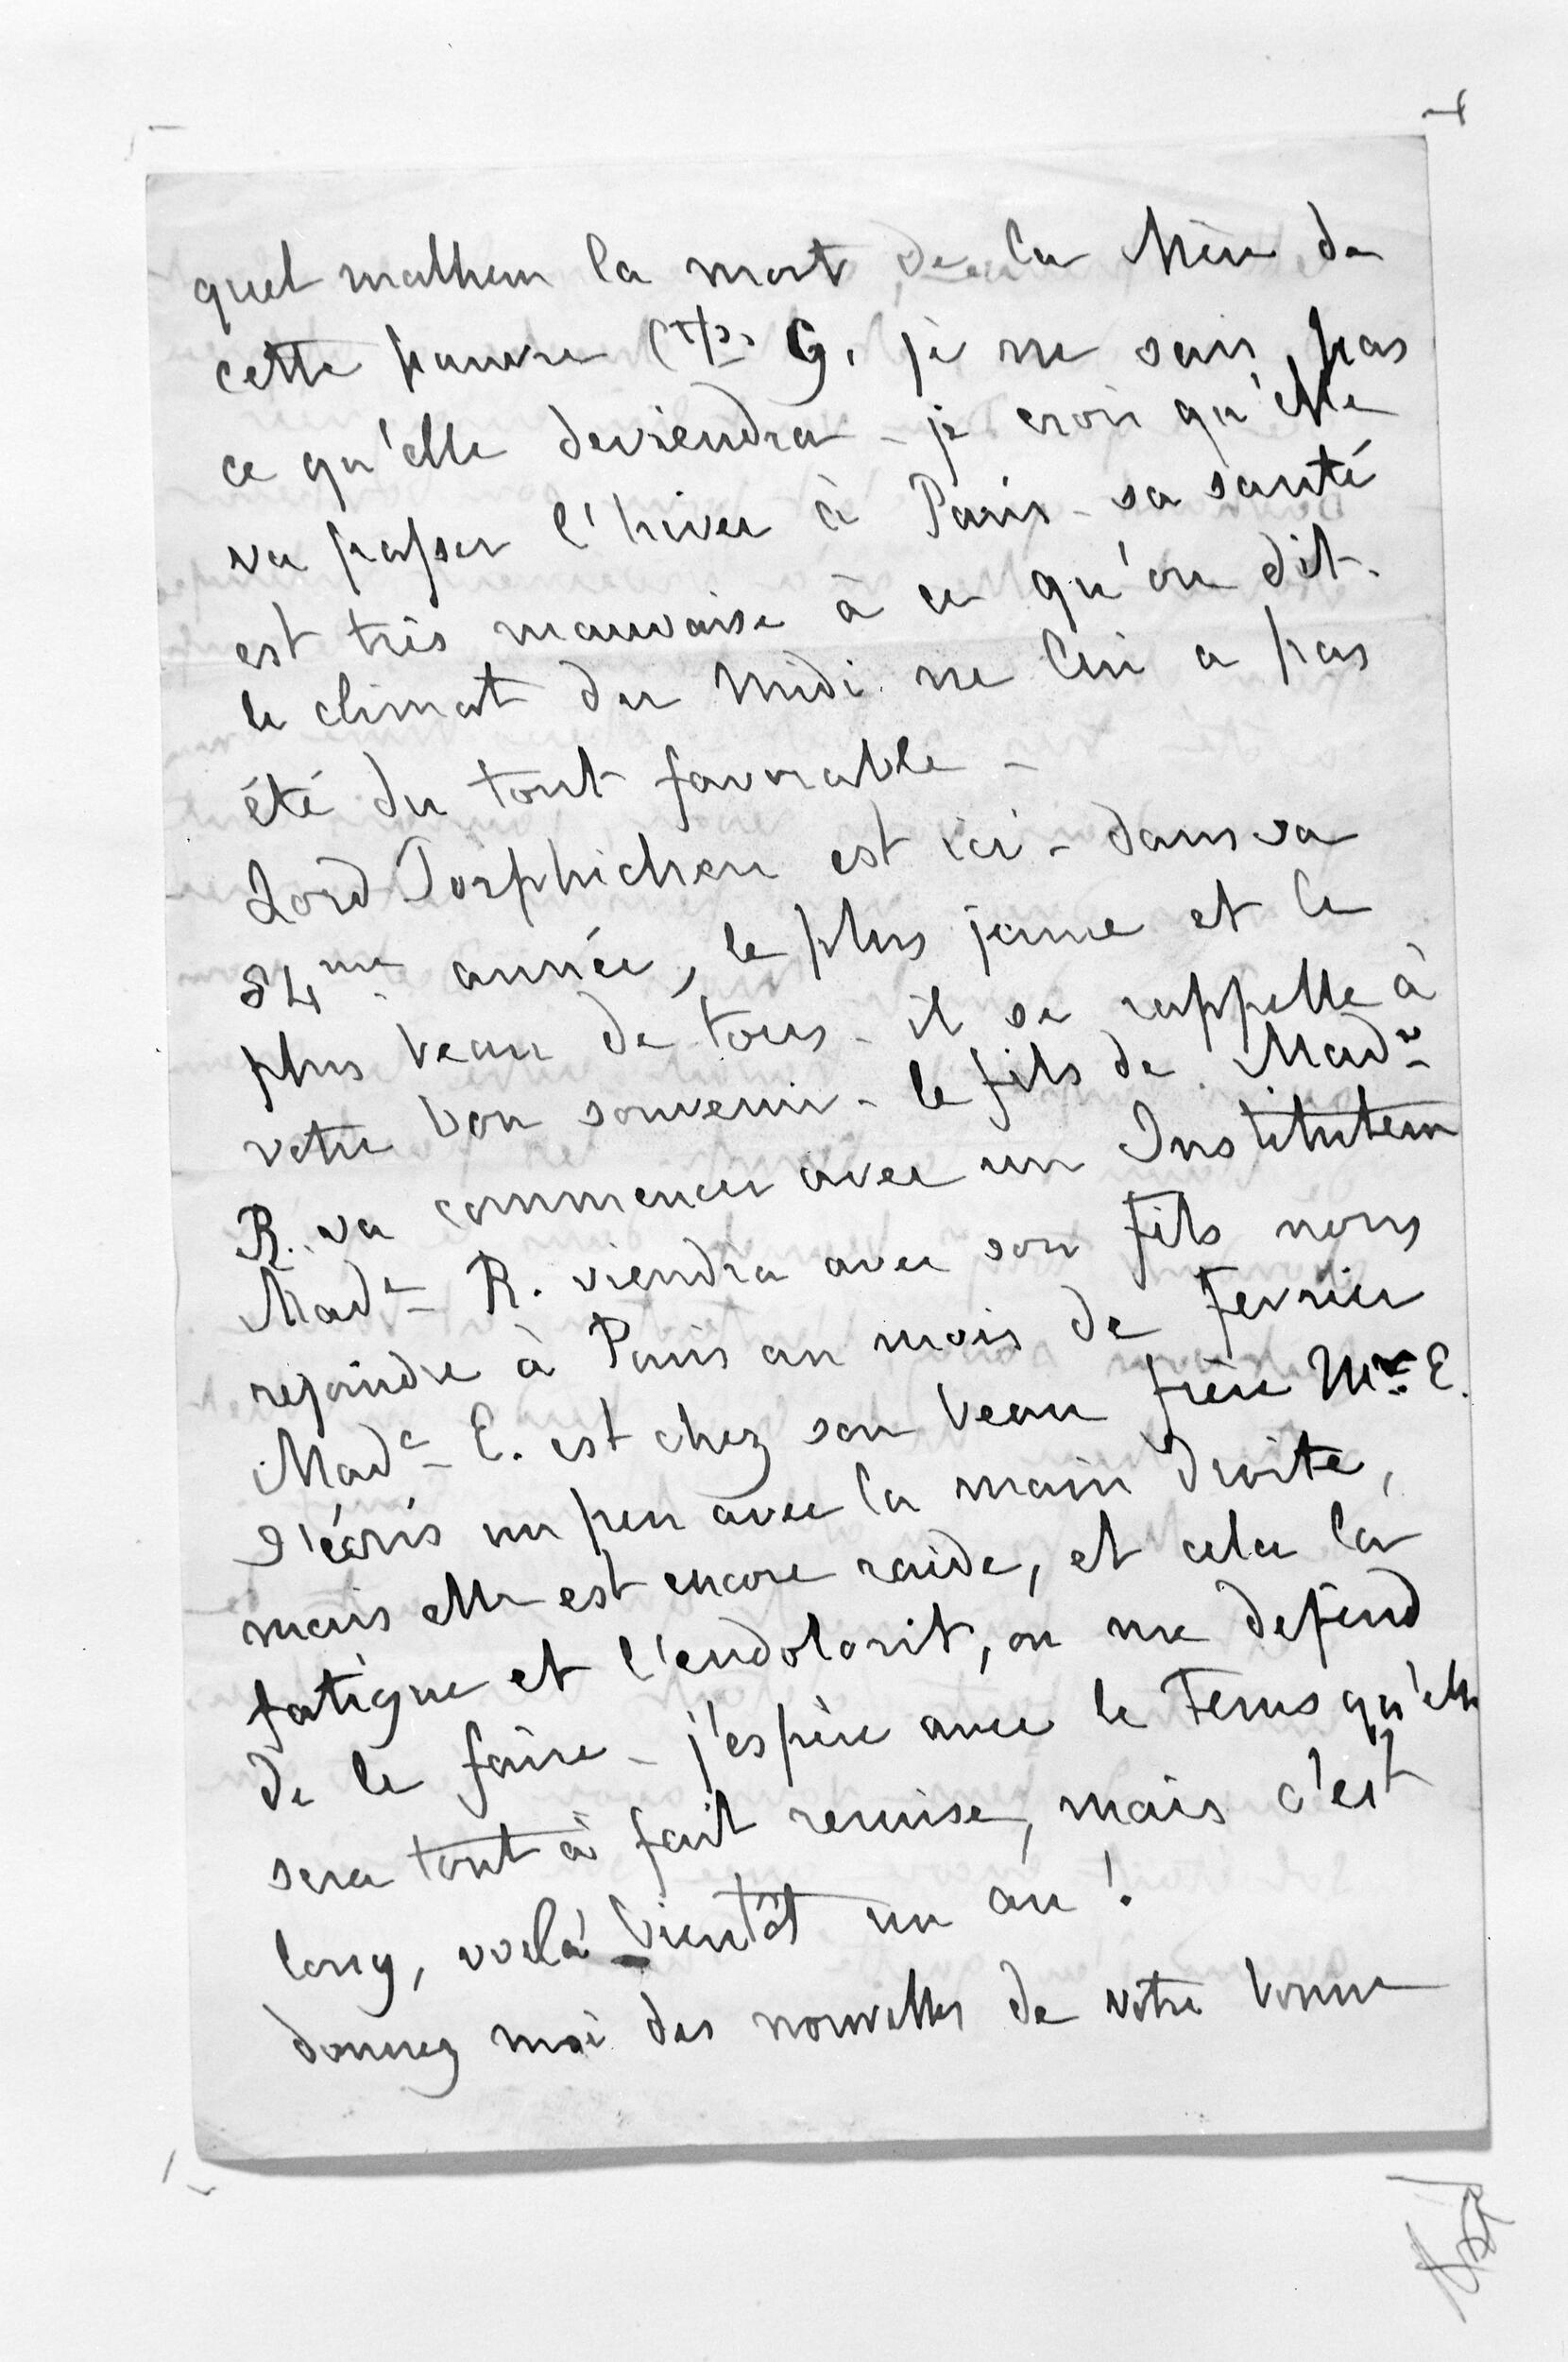 quel malheur la mort de la Mère de
cette pauvre Ctsse G. je ne sais pas
ce qu'elle deviendra - je crois qu'elle
va passer l'hiver à Paris - sa santé
est très mauvaise à ce qu'on dit -
le climat du Midi ne lui a pas
été du tout favorable -
Lord Torphichen est ici - dans sa
84me année, le plus jeune et le
plus beau de tous - il se rappelle à
votre bon souvenir - le fils de Made
R. va commencer avec un Instituteur
Made R. viendra avec son fils nous
rejoindre à Paris au mois de Fevrier
Made E. est chez son beau frère Mr E.
J'écris un peu avec la main droite,
mais elle est encore raide, et cela la
fatigue et l'endolorit, on me defend
de le faire - j'espère avec le Tems qu'elle
sera tout à fait remise, mais c'est
long, voilà bientôt un an !
donnez moi des nouvelles de votre bonne